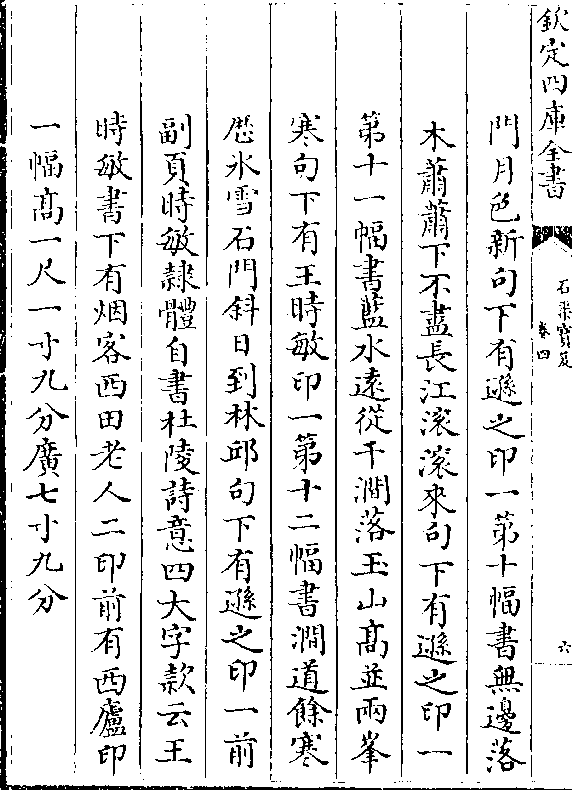 欽定四庫全書
石渠寶笈
卷四
六
門月色新句下有遜之印一第十幅書無邊落
木蕭蕭下不盡長江滚滚來句下有遜之印一
第十一幅書藍水遠從千澗落玉山髙並兩峯
寒句下有王時敏印一第十二幅書澗道餘寒
歴氷雪石門斜日到林邱句下有遜之印一前
副頁時敏隷體自書杜陵詩意四大字款云王
時敏書下有烟客西田老人二印前有西廬印
一幅髙一尺一寸九分廣七寸九分